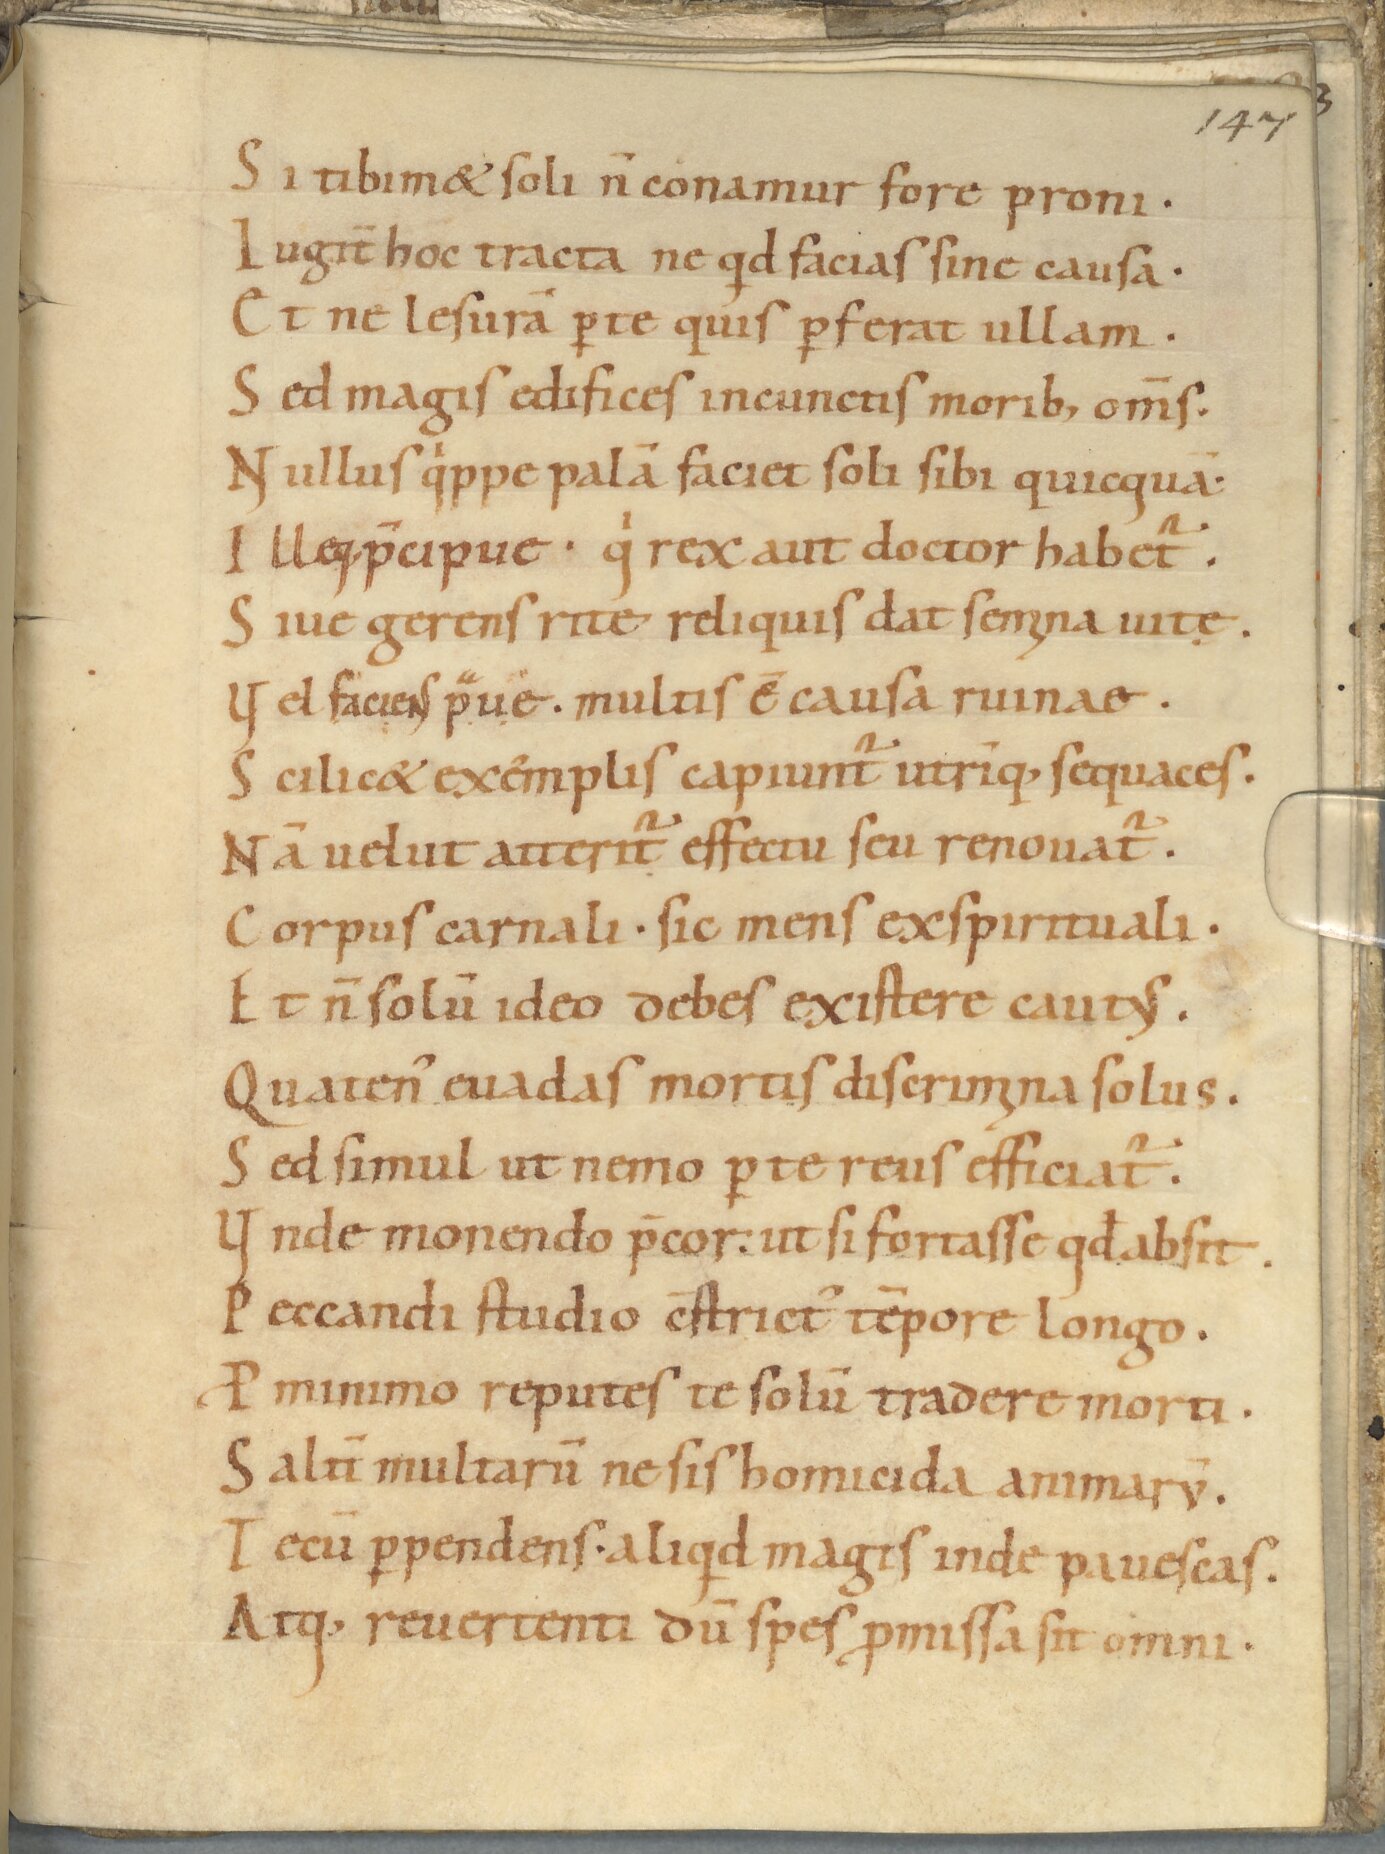 147
Si tibimet soli n̄ conamur fore proni.
Iugit̄ hoc tracta ne qd facias sine causa.
Et ne lesurā ꝑ te quis ꝑferat ullam.
Sed magis edifices incunctis morib; om̄s.
Nullus qͥppe palā faciet soli sibi quicquā.
Illeq; p̄cipue. qͥ rex aut doctor habet᷑.
Siue gerens rite reliquis dat semina uitę.
Vel faciens pͣue. multis ē causa ruinae.
Scilic& exemplis capiunt᷑ utriq; sequaces.
Nā uelut atterit᷑ effectu seu renouat᷑.
Corpus carnali. sic mens exspirituali.
Et n̄ solū ideo debes existere cautus.
Quaten᾽ euadas mortis discrimina solus.
Sed simul ut nemo ꝑ te reus efficiat᷑.
Vnde monendo p̄cor: ut si fortasse qđ absit.
Peccandi studio c̄strict᾽ tēpore longo.
P minimo reputes te solū tradere morti.
Saltī multarū ne sis homicida animarū.
Tecū ꝑpendens. aliqd magis inde pauescas.
Atq; reuertenti dū spes ꝓmissa sit omni.